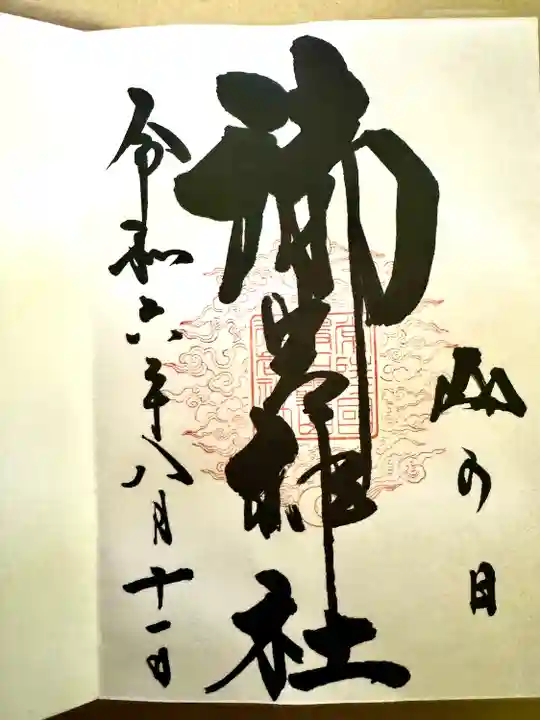 山の日
御岩神社
令和六年八月十一日